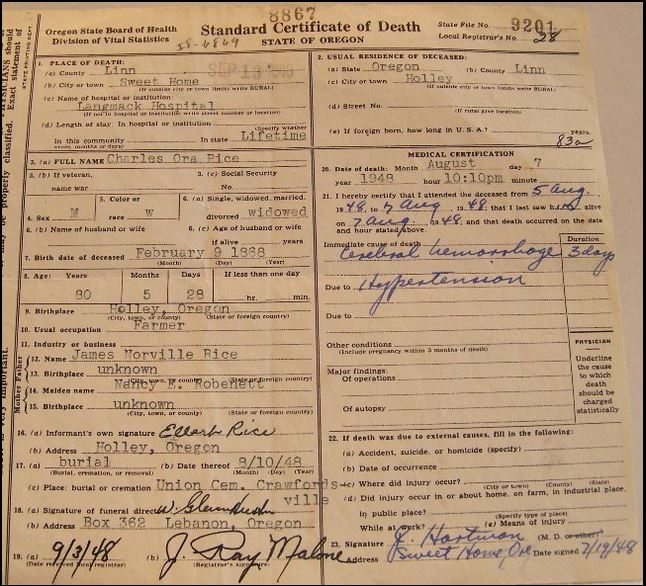 8867
Oregon State Board of Health
Division of Vital Statistics
Standard Certificate of Death
STATE OF OREGON
State File No. 9201
Local Registrar's No. 28
IS-6869
1. PLACE OF DEATH:
(a) County Linn
(b) City or town Sweet Home
(If outside city or town limits write RURAL)
(c) Name of hospital or institution:
Langmack Hospital
(If not in hospital or institution write street number or location)
(d) Length of stay: In hospital or institution
(Specify whether
In this community In state Lifetime
years, months or days)
3. (a) FULL NAME Charles Ora Rice
3. (b) If veteran, 3. (c) Social Security
name war No.
4. Sex M 5. Color or race W 6. (a) Single, widowed, married, divorced widowed
6. (b) Name of husband or wife 6. (c) Age of husband or wife
if alive years
7. Birth date of deceased February 9 1868
(Month) (Day) (Year)
8. Age: Years Months Days If less than one day
80 5 28 hr. min.
9. Birthplace Holley, Oregon
(City, town, or county) (State or foreign country)
10. Usual occupation Farmer
11. Industry or business
Mother Father
12. Name James Norville Rice
13. Birthplace unknown
(City, town, or county) (State or foreign country)
14. Maiden name Nancy E. Robenett
15. Birthplace unknown
(City, town, or county) (State or foreign country)
16. (a) Informant's own signature Elbert Rice
(b) Address Holley, Oregon
17. (a) burial (b) Date thereof 8/10/48
(Burial, cremation, or removal) (Month) (Day) (Year)
(c) Place: burial or cremation Union Cem. Crawfords-
ville
18. (a) Signature of funeral director
(b) Address Box 362 Lebanon, Oregon
19. (a) 9/3/48 (b) J. Ray Malone
(Date received local registrar) (Registrar's signature)
2. USUAL RESIDENCE OF DECEASED:
(a) State Oregon (b) County Linn
(c) City or town Holley
(If outside city or town limits write RURAL)
(d) Street No.
(If rural give location)
(e) If foreign born, how long in U. S. A.? years.
83a
MEDICAL CERTIFICATION
20. Date of death: Month August day 7
year 1948 hour 10:10pm minute
21. I hereby certify that I attended the deceased from 5 Aug.
1948, to 7 Aug, 1948, that I last saw him alive
on 7 Aug., 1948, and that death occurred on the date
and hour stated above.
Duration
Immediate cause of death Cerebral hemorrhage 3 days
Due to Hypertension
Due to
Other conditions
(Include pregnancy within 3 months of death)
Major findings:
Of operations
Of autopsy
PHYSICIAN
Underline
the cause
to which
death
should be
charged
statistically
22. If death was due to external causes, fill in the following:
(a) Accident, suicide, or homicide (specify)
(b) Date of occurrence
(c) Where did injury occur?
(City or town) (County) (State)
(d) Did injury occur in or about home, on farm, in industrial place,
in public place?
(Specify type of place)
While at work? (e) Means of injury
23. Signature Hartman (M. D. or other)
Address Sweet Home Ore Date signed